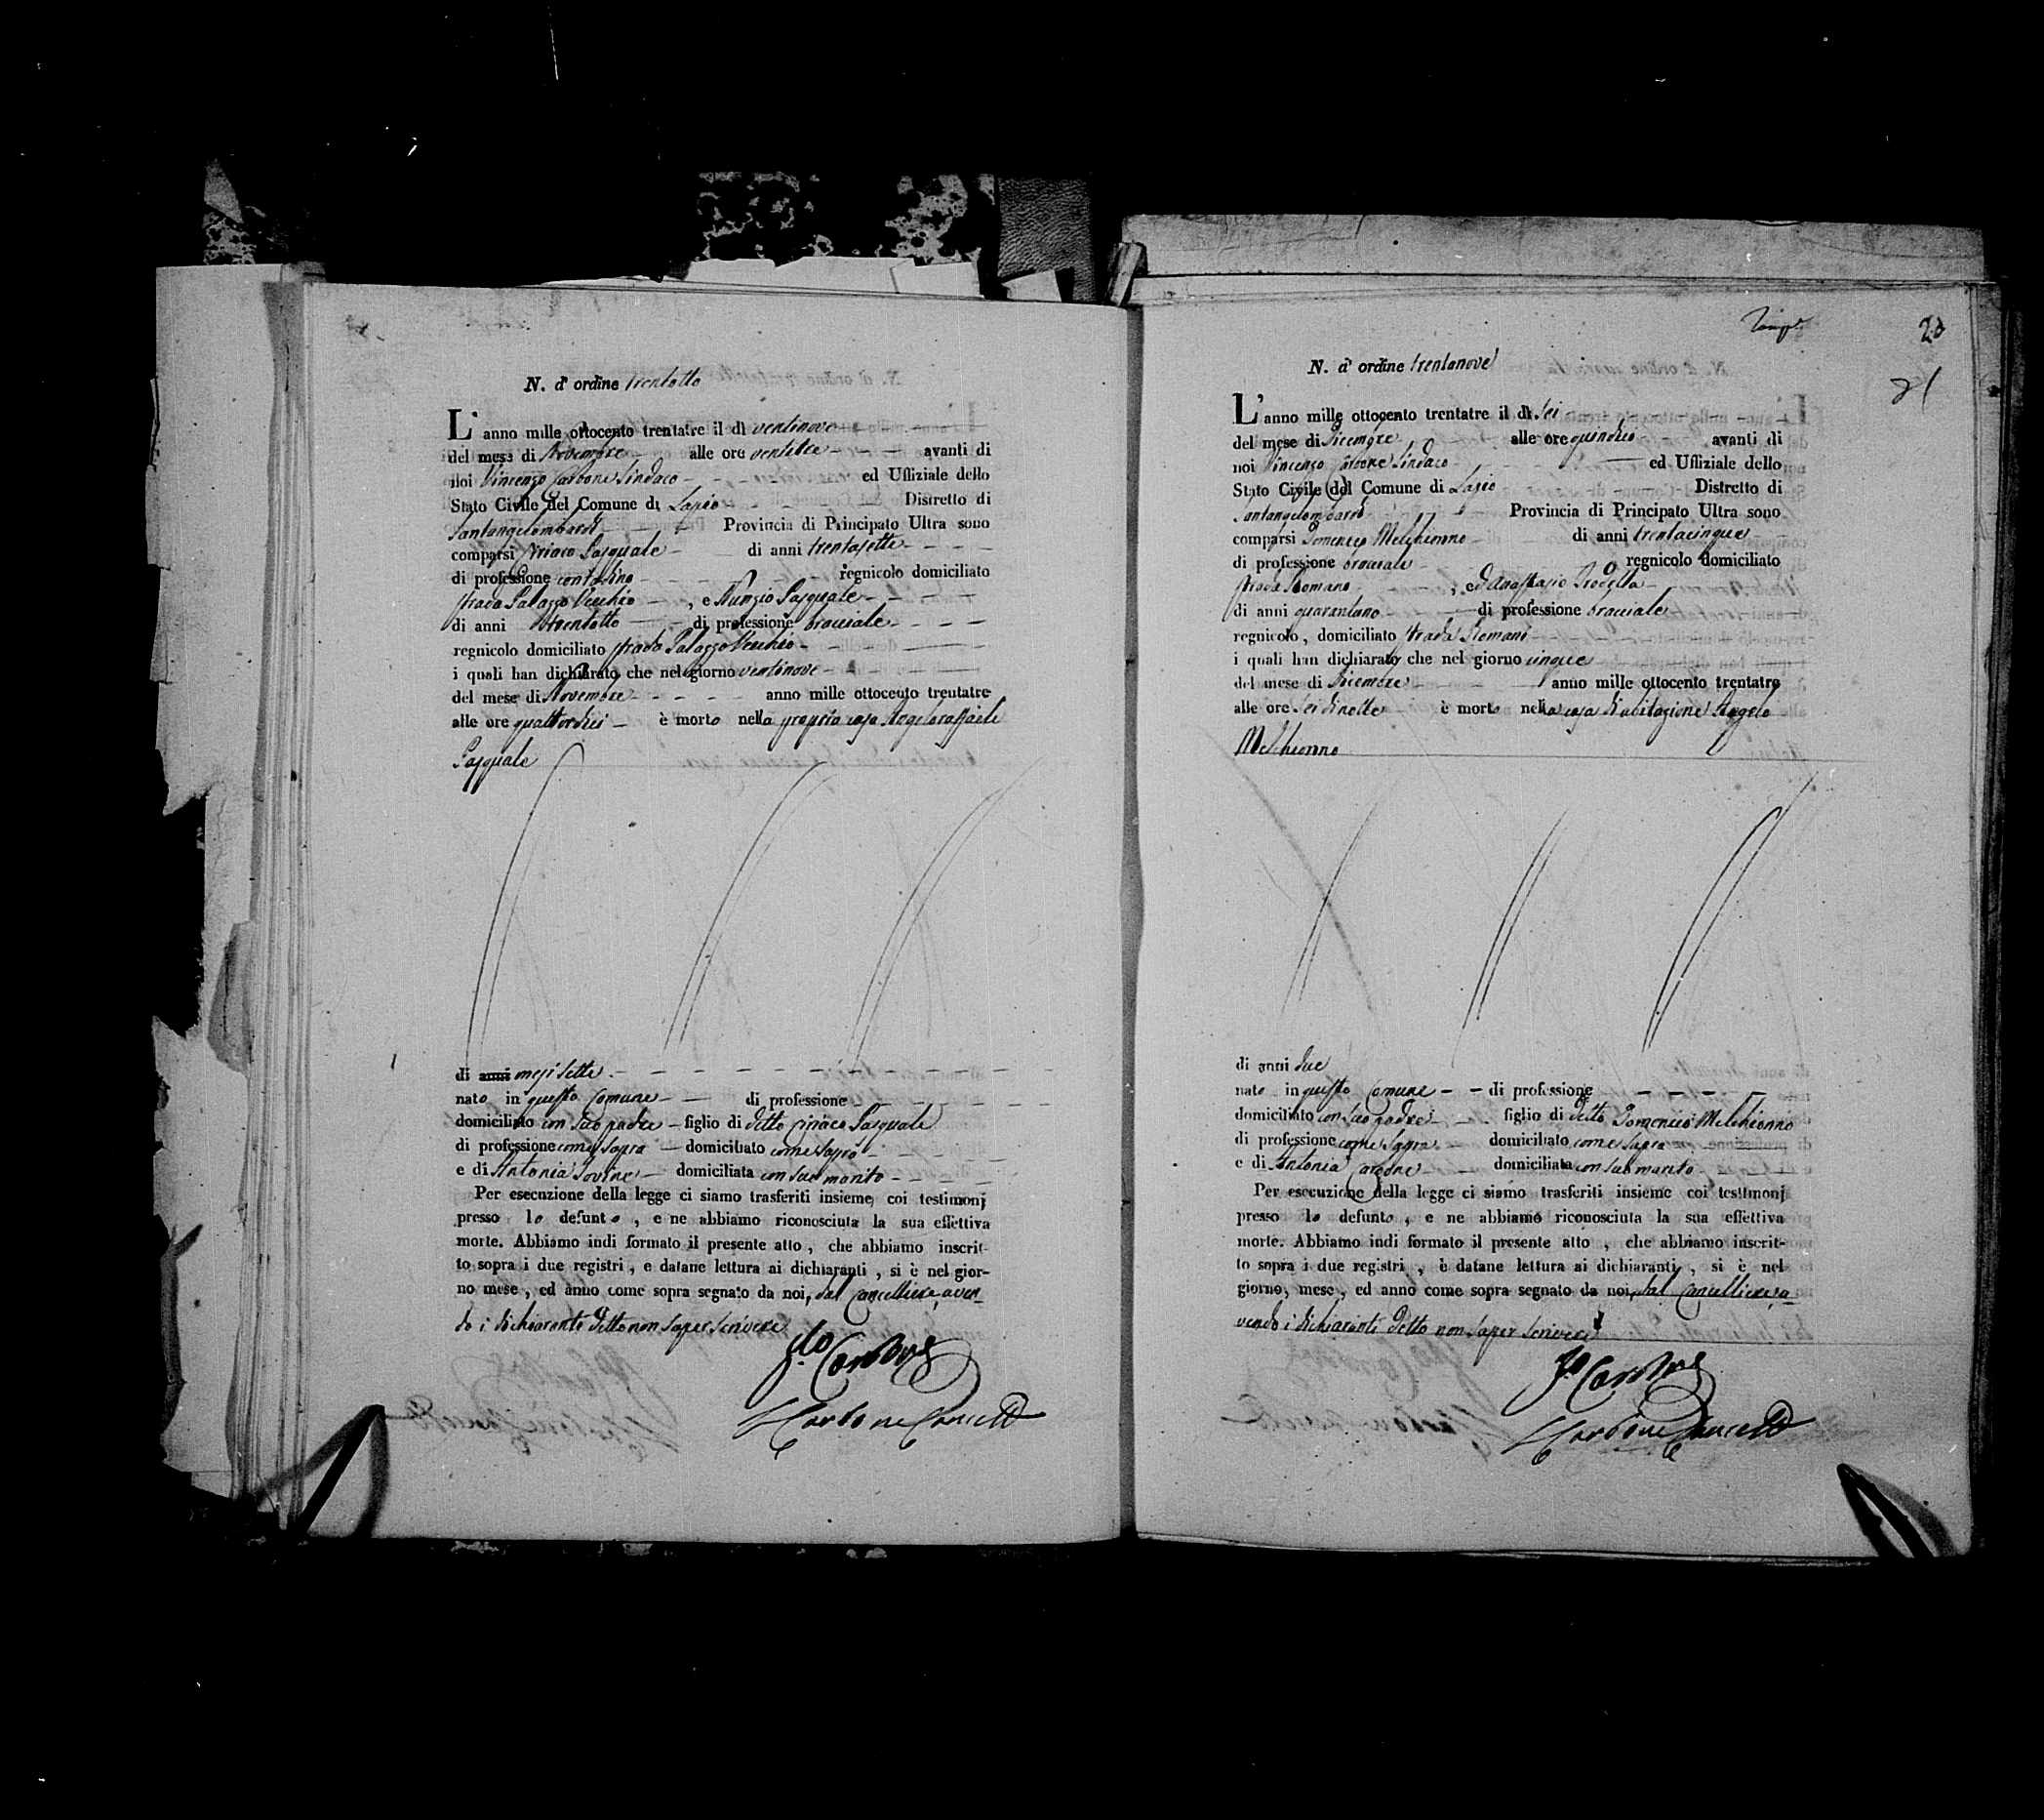 N. d'ordine trentotto
L'anno mille ottocento trentatre il dì ventinove
del mese di Novembre alle ore ventitre avanti di
noi Vincenzo Carbone Sindaco ed Uffiziale dello
Stato Civile del Comune di Lapio Distretto di
Santangelombardi Provincia di Principato Ultra sono
comparsi Ciriaco Pasquale di anni trentasette
di professione contadino regnicolo domiciliato
strada Palazzo Vecchio , e Nunzio Pasquale
di anni di professione bracciale
regnicolo domiciliato strada Palazzo Vecchio
i quali han dichiarato che nel giorno ventinove
del mese di Novembre anno mille ottocento trentatre
alle ore quattordici è morto nella propria casa Angeloraffaele
Pasquale
di anni mesi sette
nato in questo Comune di professione
domiciliato con suo padre figlio di detto Ciriaco Pasquale
di professione come sopra domiciliato come sopra
e di Antonia Iovine domiciliata con suo marito
Per esecuzione della legge ci siamo trasferiti insieme coi testimonj
presso lo defunto , e ne abbiamo riconosciuta la sua effettiva
morte. Abbiamo indi formato il presente atto , che abbiamo inscrit-
to sopra i due registri , e datane lettura ai dichiaranti , si è nel gior-
no mese , ed anno come sopra segnato da noi, dal Cancelliere, aven-
do i dichiaranti detto non saper scrivere
Carbone
Carbone Cancell
20
21
N. d'ordine trentanove
L'anno mille ottocento trentatre il dì sei
del mese di Dicembre alle ore quindici avanti di
noi Vincenzo Carbone Sindaco ed Uffiziale dello
Stato Civile del Comune di Lapio Distretto di
Santangelombardi Provincia di Principato Ultra sono
comparsi Domenico Melchionno di anni trentacinque
di professione bracciale regnicolo domiciliato
strada Romano , ed Anastasio Trodella
di anni quarantano di professione bracciale
regnicolo, domiciliato strada Romano
i quali han dichiarato che nel giorno cinque
del mese di Dicembre anno mille ottocento trentatre
alle ore sei di notte è morto nella casa d'abitazione Angelo
Melchionno
di anni due
nato in questo Comune di professione
domiciliato con suo padre figlio di detto Domenico Melchionno
di professione come sopra domiciliato come sopra
e di Antonia Carbone domiciliata con suo marito
Per esecuzione della legge ci siamo trasferiti insieme coi testimonj
presso lo defunto , e ne abbiamo riconosciuta la sua effettiva
morte. Abbiamo indi formato il presente atto , che abbiamo inscrit-
to sopra i due registri , è datane lettura ai dichiaranti , si è nel
giorno, mese , ed anno come sopra segnato da noi, dal Cancelliere, a-
vendo i dichiaranti detto non saper scrivere
Carbone
Carbone Cancell